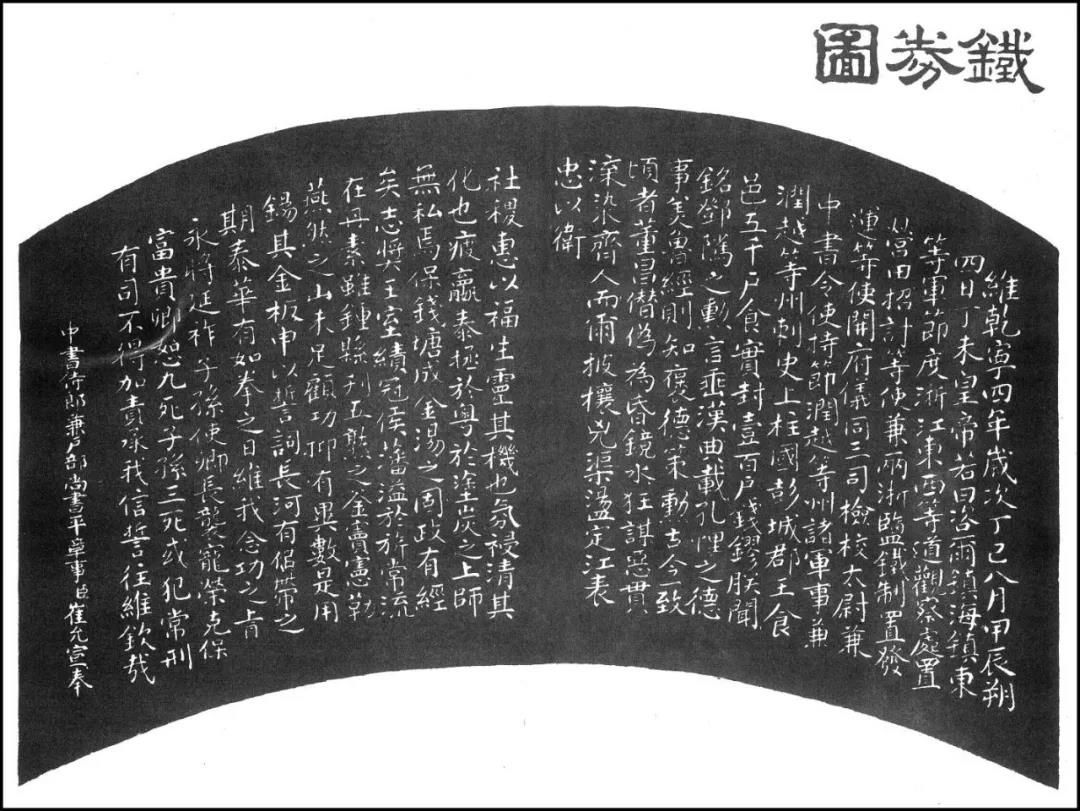 鐵券圖
維乾寧四年歲次丁巳八月甲辰朔
四日丁未皇帝若曰咨爾鎮海鎮東
等軍節度浙江東西等道觀察處置
營田招討等使兼兩浙鹽鐵制置發
運等使開府儀同三司檢校太尉兼
中書令使持節潤越等州諸軍事兼
潤越等州刺史上柱國彭城郡王食
邑五千戶食實封壹百戶錢鏐朕聞
銘鄧隲之勳言垂漢典載孔悝之德
事美魯經則知褒德策勳古今一致
頃者董昌僭偽為昏鏡水狂謀惡貫
渫染齊人而爾披攘兇渠盪定江表
忠以衛
社稷惠以福生靈其機也氛祲清其
化也疲羸泰拯於粵於塗炭之上師
無私焉保錢塘成金湯之固政有經
矣志獎王室績冠侯藩溢於旂常流
在丹素雖鍾繇刊五熟之釜竇憲勒
燕然之山未足顧功抑有異數是用
錫其金板申以誓詞長河有似帶之
期泰華有如拳之日維我念功之旨
永將延祚子孫使卿長襲寵榮克保
富貴卿恕九死子孫三死或犯常刑
有司不得加責承我信誓往維欽哉
中書侍郎兼戶部尚書平章事臣崔允宣奉